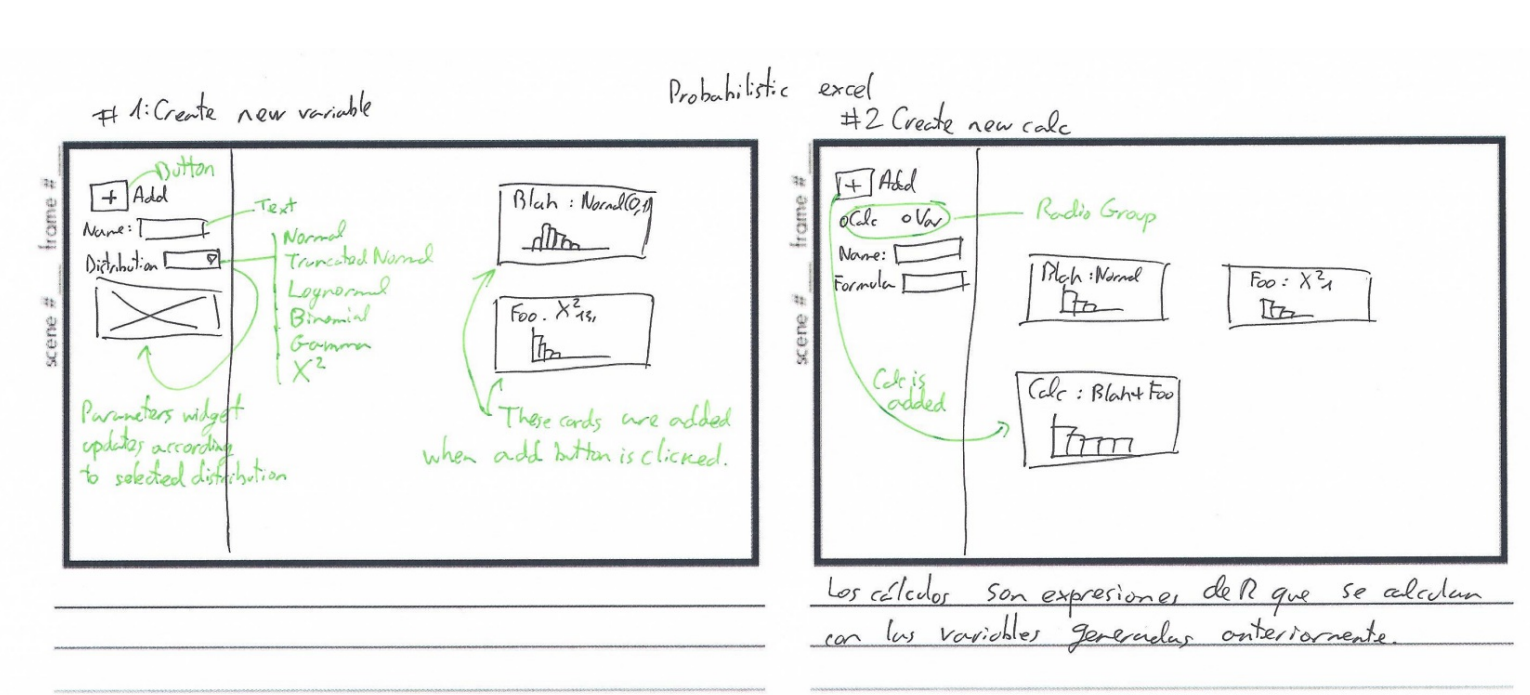 Probabilistic excel
# 1: Create new variable
frame #
scene #
Button
+ Add
Name:
Text
Distribution
Normal
Truncated Normal
Lognormal
Binomial
Gamma
X²
Parameters widget
updates according
to selected distribution
Blah : Normal(0,1)
Foo. X²
These cards are added
when add button is clicked.
#2 Create new calc
frame #
scene #
+ Add
Calc Var
Radio Group
Name:
Formula
Blah : Normal
Foo : X²1
Calc is
added
Calc : Blah + Foo
Los cálculos son expresiones de R que se calculan
con las variables generadas anteriormente.